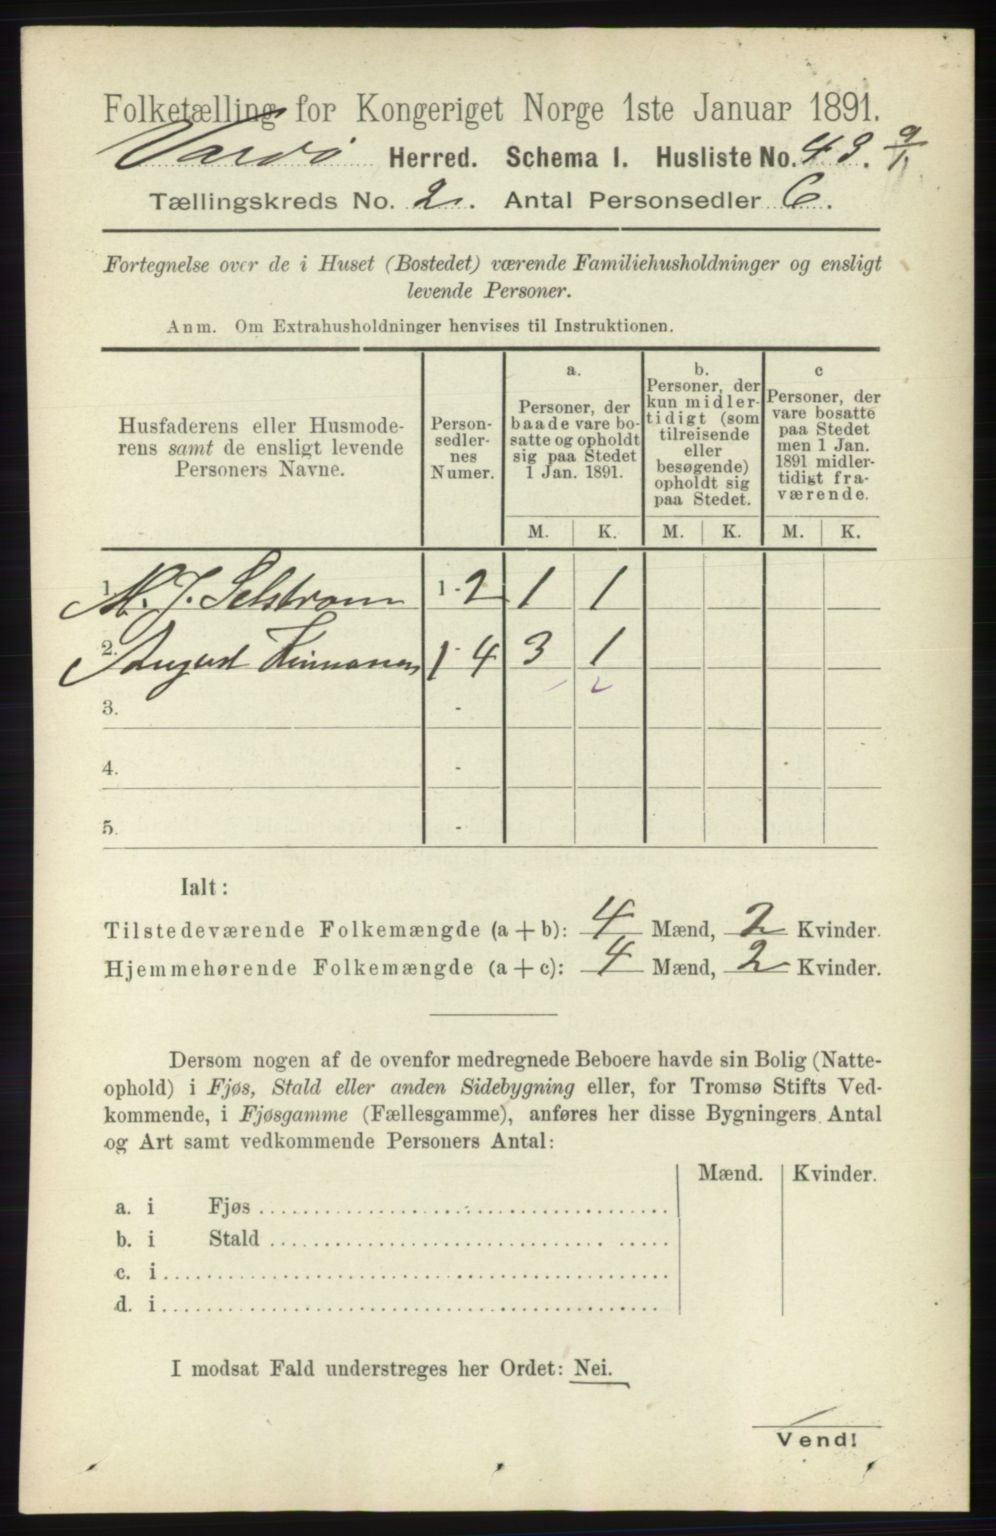 Folketælling for Kongeriget Norge 1ste Januar 1891.
Vardø Herred. Schema I. Husliste No. 43. 9/1
Tællingskreds No. 2. Antal Personsedler 6.
Fortegnelse over de i Huset (Bostedet) værende Familiehusholdninger og ensligt
levende Personer.
Anm. Om Extrahusholdninger henvises til Instruktionen.
Husfaderens eller Husmode-
rens samt de ensligt levende
Personers Navne.
Person-
sedler-
nes
Numer.
a.
Personer, der
baade vare bo-
satte og opholdt
sig paa Stedet
1 Jan. 1891.
b.
Personer, der
kun midler-
tidigt (som
tilreisende
eller
besøgende)
opholdt sig
paa Stedet.
c
Personer, der
vare bosatte
paa Stedet
men 1 Jan.
1891 midler-
tidigt fra-
værende.
M. K. M. K. M. K.
1. M. J. Selstrøm 1-2 1 1
2. August 1-4 3 1
3. -
4. -
5. -
Ialt:
Tilstedeværende Folkemængde (a+b): 4 Mænd, 2 Kvinder.
Hjemmehørende Folkemængde (a+c): 4 Mænd, 2 Kvinder.
Dersom nogen af de ovenfor medregnede Beboere havde sin Bolig (Natte-
ophold) i Fjøs, Stald eller anden Sidebygning eller, for Tromsø Stifts Ved-
kommende, i Fjøsgamme (Fællesgamme), anføres her disse Bygningers Antal
og Art samt vedkommende Personers Antal:
Mænd. Kvinder.
a. i Fjøs
b. i Stald
c. i
d. i
I modsat Fald understreges her Ordet: Nei.
Vend!